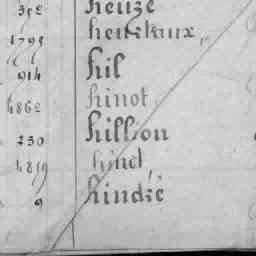 352 heuze
1795 heuskaux,
914 hil
4862 hinot,
230 hillion
4859 hinel
9 hindzé